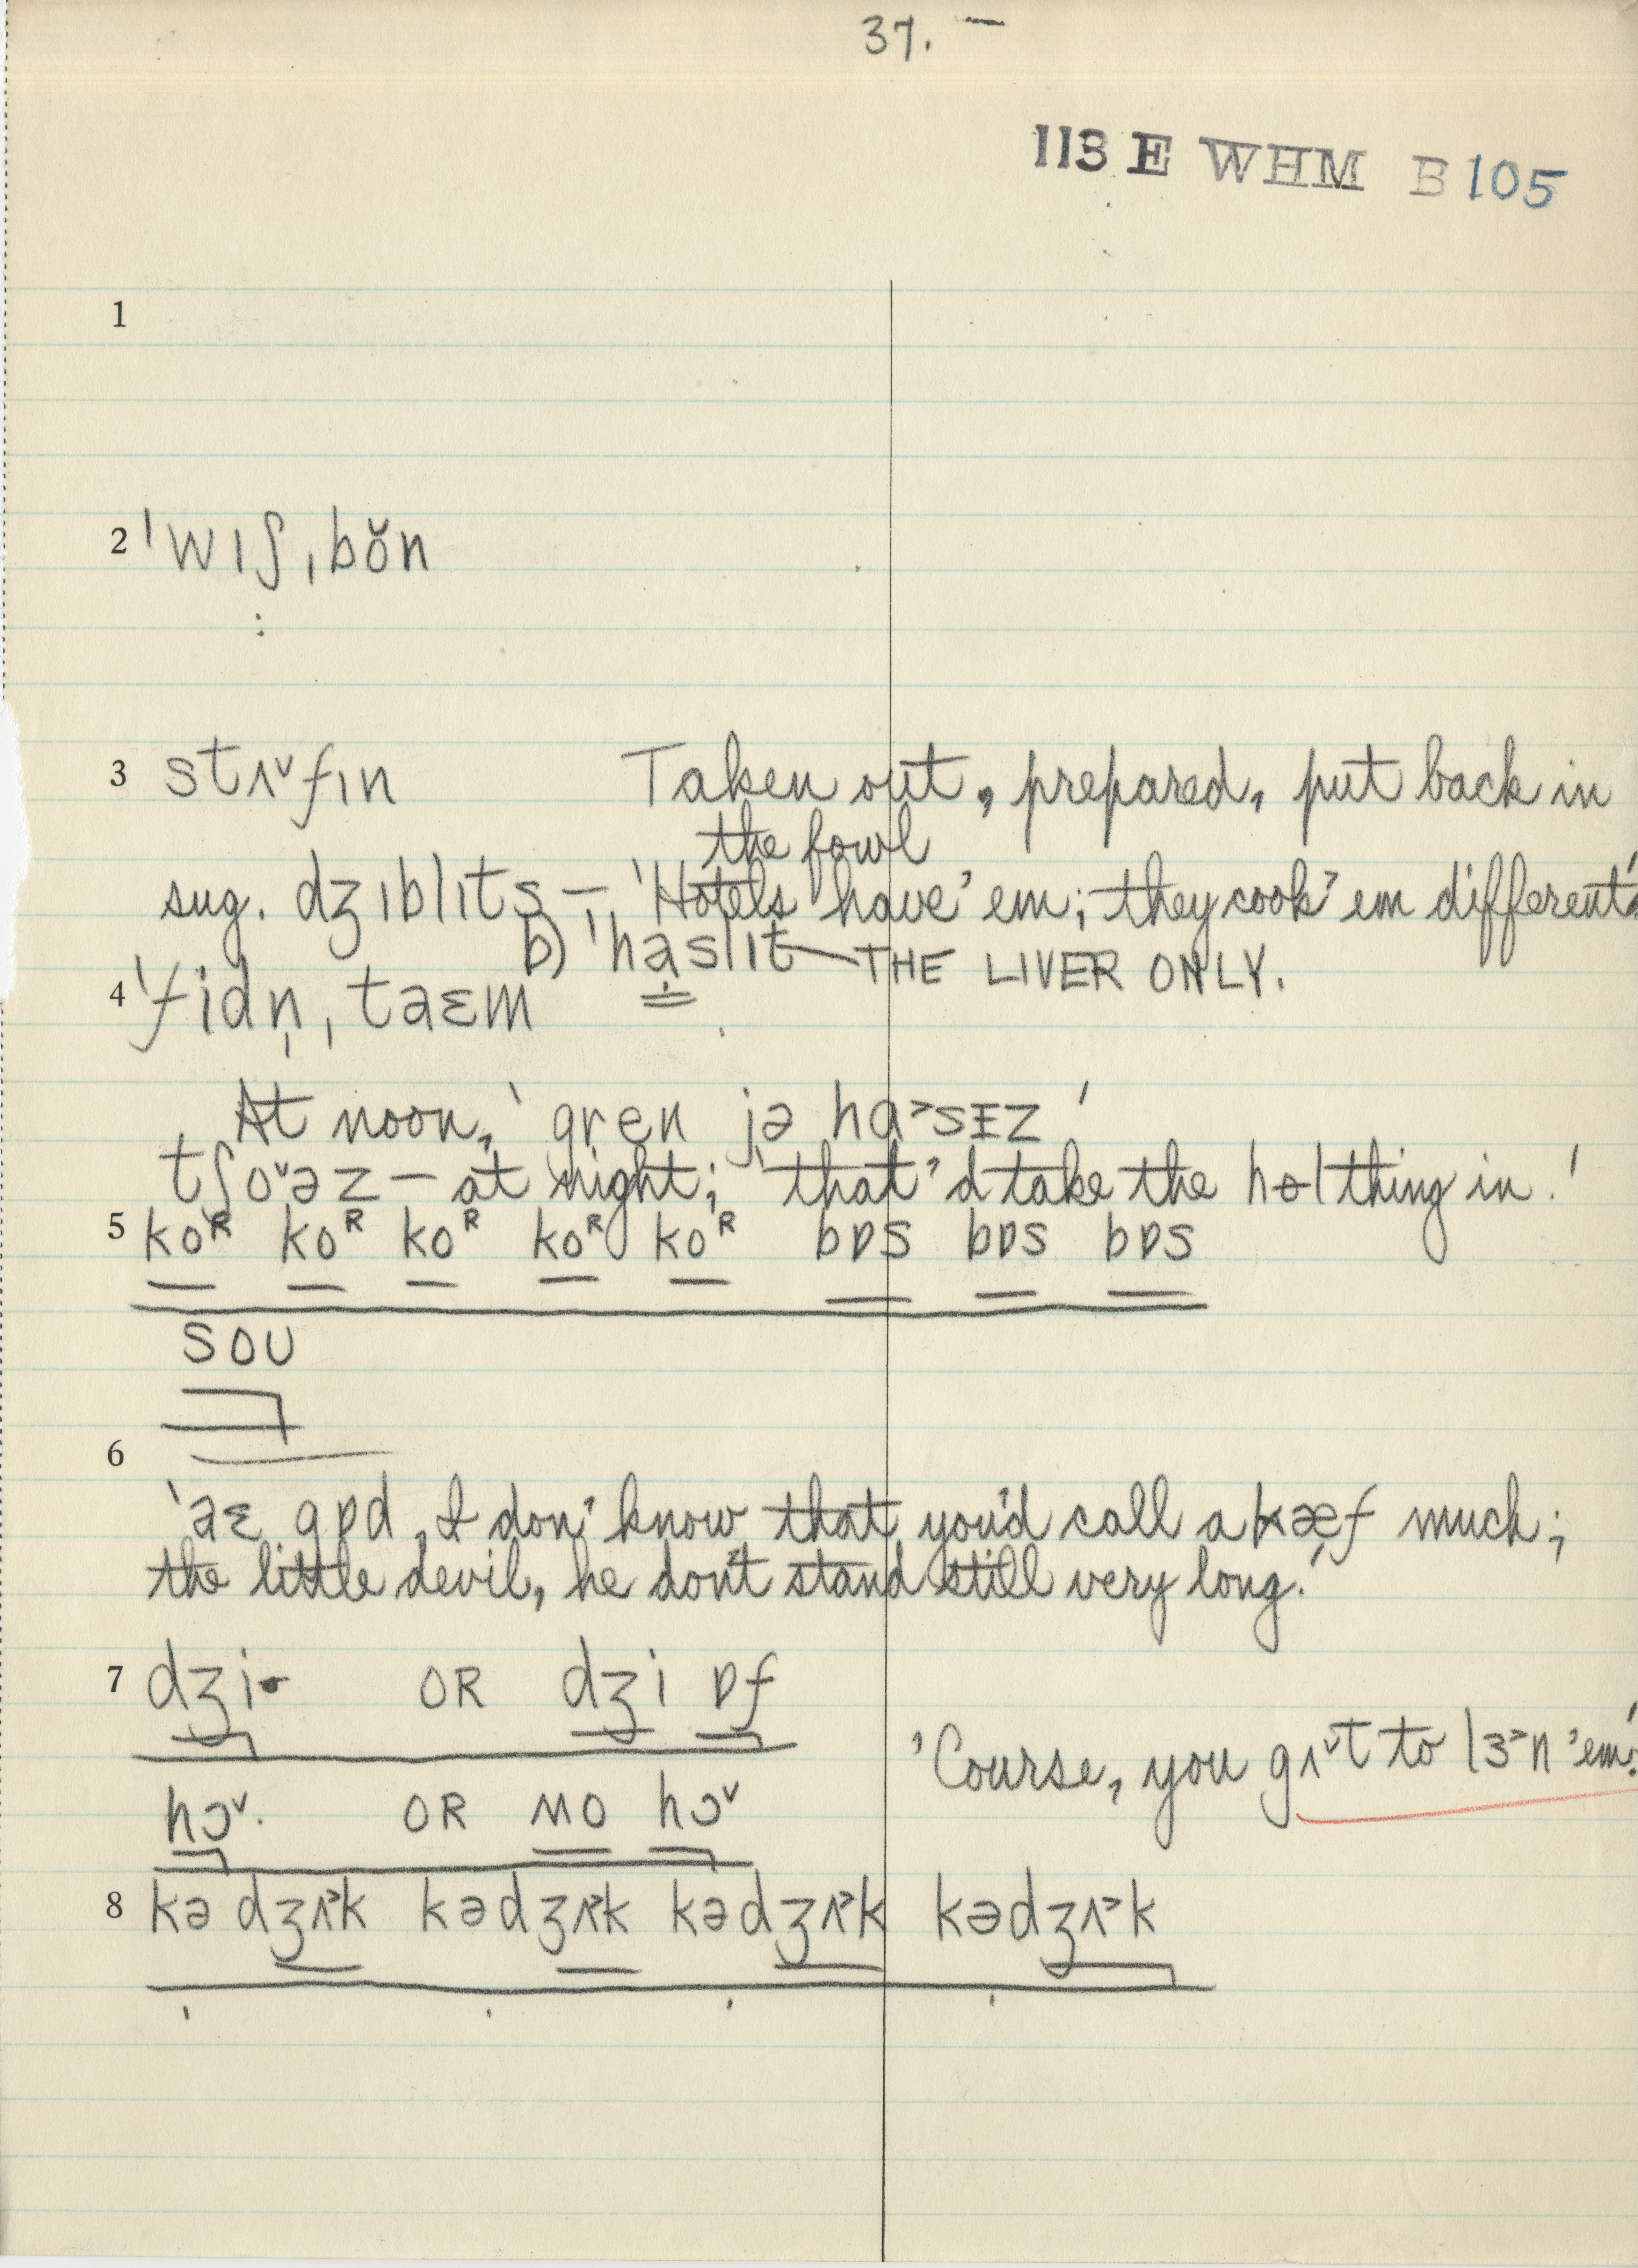 37. —
113 E WHM B 105
1
2 ˈwɪʃˌbŏn
3 stʌ˅fɪn Taken out, prepared, put back in
the fowl
sug. dʒɪblɪts — 'Hotels have 'em; they cook 'em different.'
b) ˈhaslɪt — THE LIVER ONLY.
4 ˈfidn̩ˌtaɛm
At noon, 'gren jə hɑ˃sɪz'
tʃo˅əz — at night; 'that'd take the hol thing in.'
5 koᴿ koᴿ koᴿ koᴿ koᴿ bɒs bɒs bɒs
soʊ
6
'aɛ gɒd, I don' know that you'd call a kæf much;
the little devil, he don't stand still very long.'
7 dʒi· OR dʒi ɒf
'Course, you gʌ˅t to lɜ˃n 'em.'
hɔ˅· OR no hɔ˅
8 kədʒʌ˃k kədʒʌ˃k kədʒʌ˃k kədʒʌ˃k